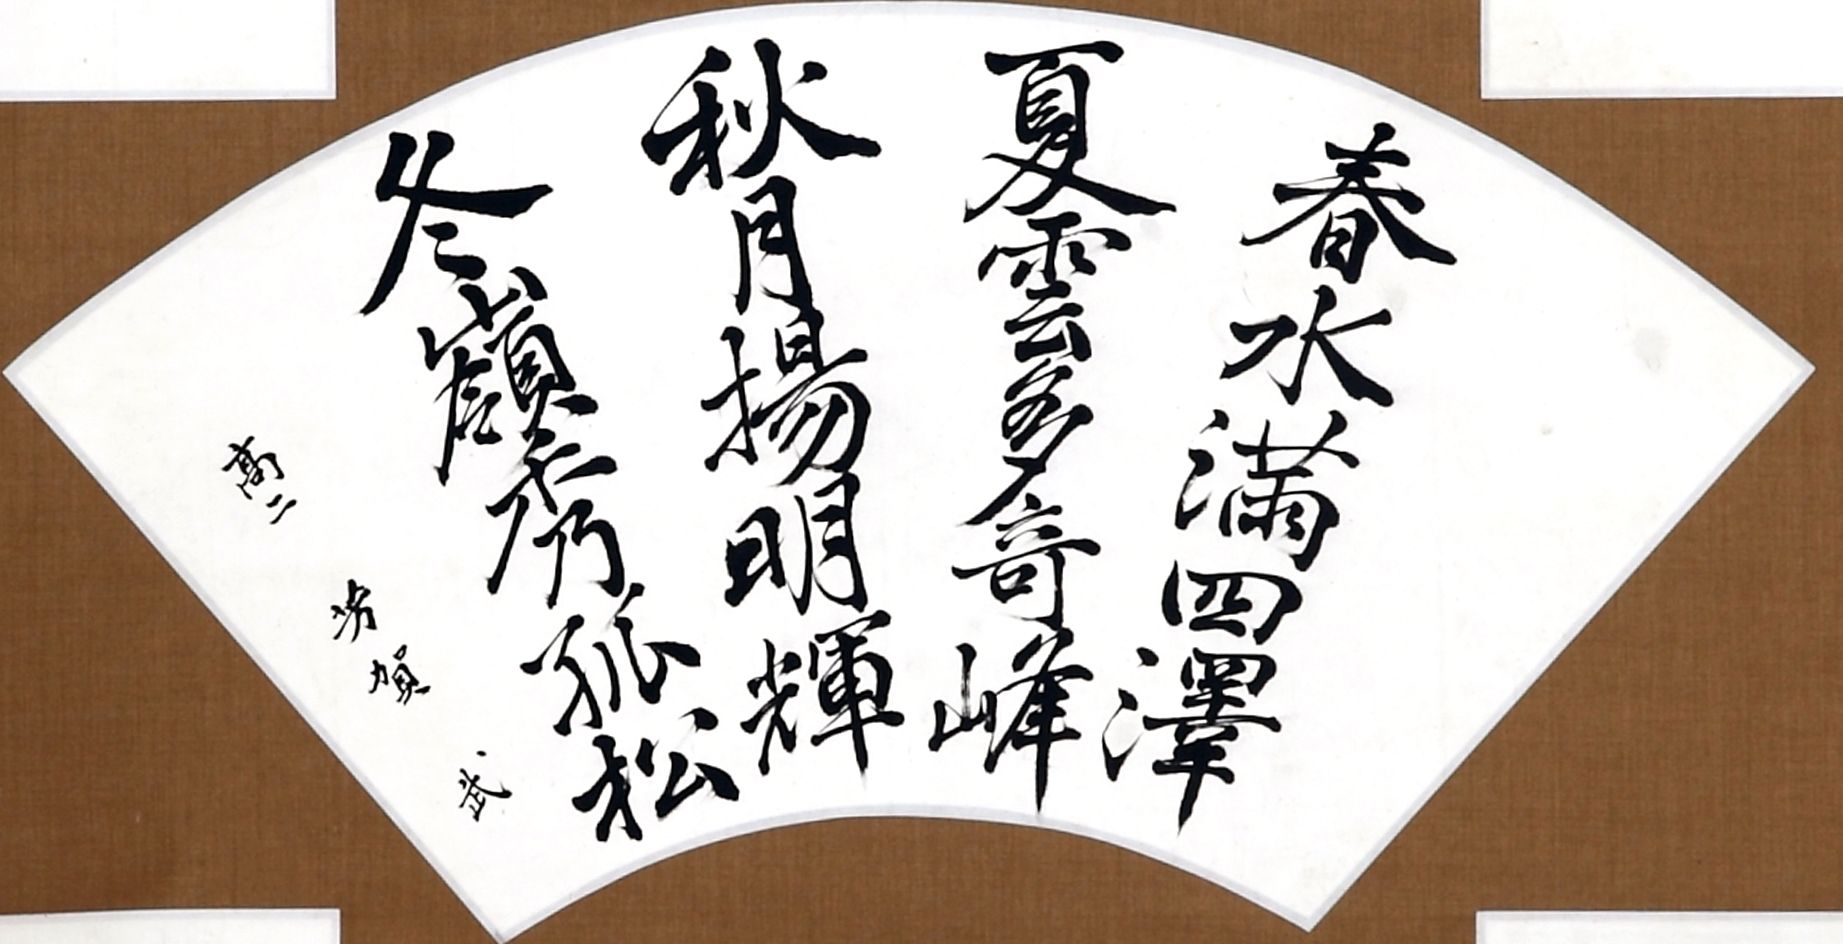 春水満四澤
夏雲多奇峰
秋月揚明輝
冬嶺秀孤松
高二 芳賀 武